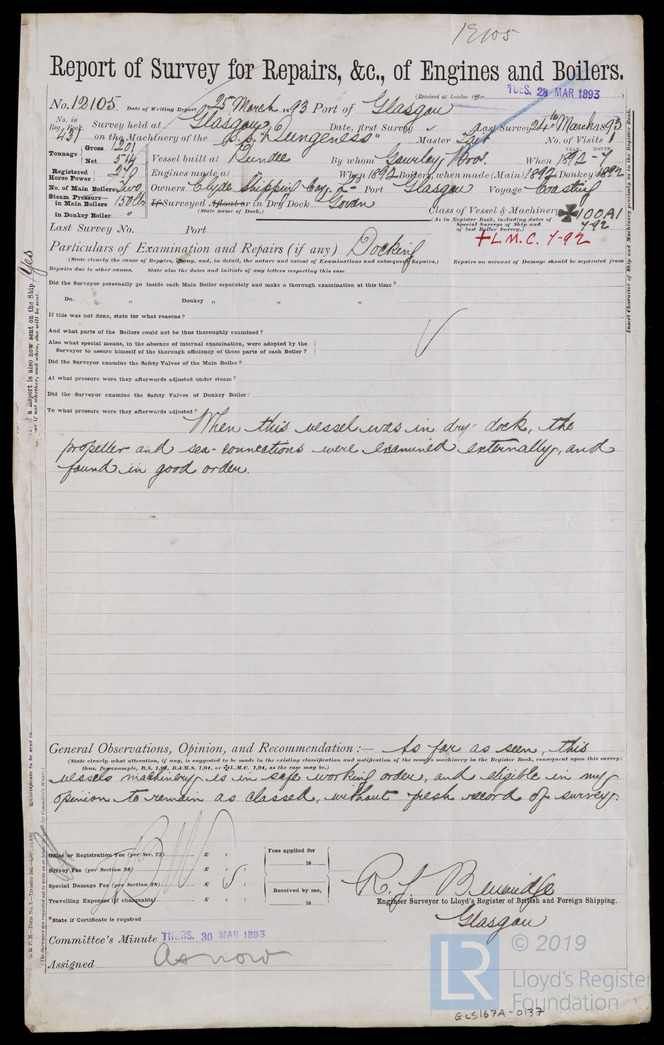 12105
Report of Survey for Repairs, &c., of Engines and Boilers.
(Received at London Office TUES. 28 MAR 1893
No. 12105 Date of Writing Report 25th March 1893 Port of Glasgow
No. in Reg. Book. 431 Survey held at Glasgow Date, first Survey " Last Survey 24th March 1893
on the Machinery of the S.S. "Dungeness" Master Tait No. of Visits 1
Tonnage Gross 1201 Net 514 Vessel built at Dundee By whom Gourlay Bros. When 1892 - 7
YEAR. MONTH.
Registered Horse Power Engines made at When 1892 Boilers, when made (Main) 1892 Donkey 1892
No. of Main Boilers Two Owners Clyde Shipping Coy. Ld Port Glasgow Voyage Coasting
Steam Pressure— in Main Boilers 150 lbs If Surveyed Afloat or in Dry Dock Govan
(State name of Dock.)
in Donkey Boiler "
Class of Vessel & Machinery ✠100A1
(As in Register Book, including dates of Special Surveys of Ship and of last Boiler Survey.) 7-92
Last Survey No. Port
+L.M.C. 7-92
Particulars of Examination and Repairs (if any) Docking
(State clearly the cause of Repairs, if any, and, in detail, the nature and extent of Examinations and subsequent Repairs.) Repairs on account of Damage should be separated from
Repairs due to other causes. State also the dates and initials of any letters respecting this case
Did the Surveyor personally go inside each Main Boiler separately and make a thorough examination at this time?
Do. " Donkey " " "
If this was not done, state for what reasons?
And what parts of the Boilers could not be thus thoroughly examined?
Also what special means, in the absence of internal examination, were adopted by the
Surveyor to assure himself of the thorough efficiency of those parts of each Boiler?
Did the Surveyor examine the Safety Valves of the Main Boiler?
At what pressure were they afterwards adjusted under steam?
Did the Surveyor examine the Safety Valves of Donkey Boiler?
To what pressure were they afterwards adjusted?
When this vessel was in dry dock, the
propeller and sea-connections were examined externally, and
found in good order.
General Observations, Opinion, and Recommendation :— As far as seen, this
(State clearly what alteration, if any, is suggested to be made in the existing classification and notification of the vessel's machinery in the Register Book, consequent upon this survey;
thus, for example, B.S. 1,94, B.&M.S. 1,94, or ✠L.M.C. 1,94, as the case may be.)
vessels machinery is in safe working order, and eligible in my
opinion to remain as classed, without fresh record of survey.
Office or Registration Fee (per Sec. 27) £ : :
Survey Fee (per Section 28) £ : :
Special Damage Fee (per Section 28) £ : :
Travelling Expenses (if chargeable) £ : :
Fees applied for
18
Received by me,
18
*State if Certificate is required
R. L. Beveridge
Engineer Surveyor to Lloyd's Register of British and Foreign Shipping.
Glasgow
Committee's Minute THURS. 30 MAR 1893
Assigned As now
Insert Character of Ship and Machinery precisely as in the Register Book.
Yes
LR
© 2019
Lloyd's Register
Foundation
GLS167A-0137